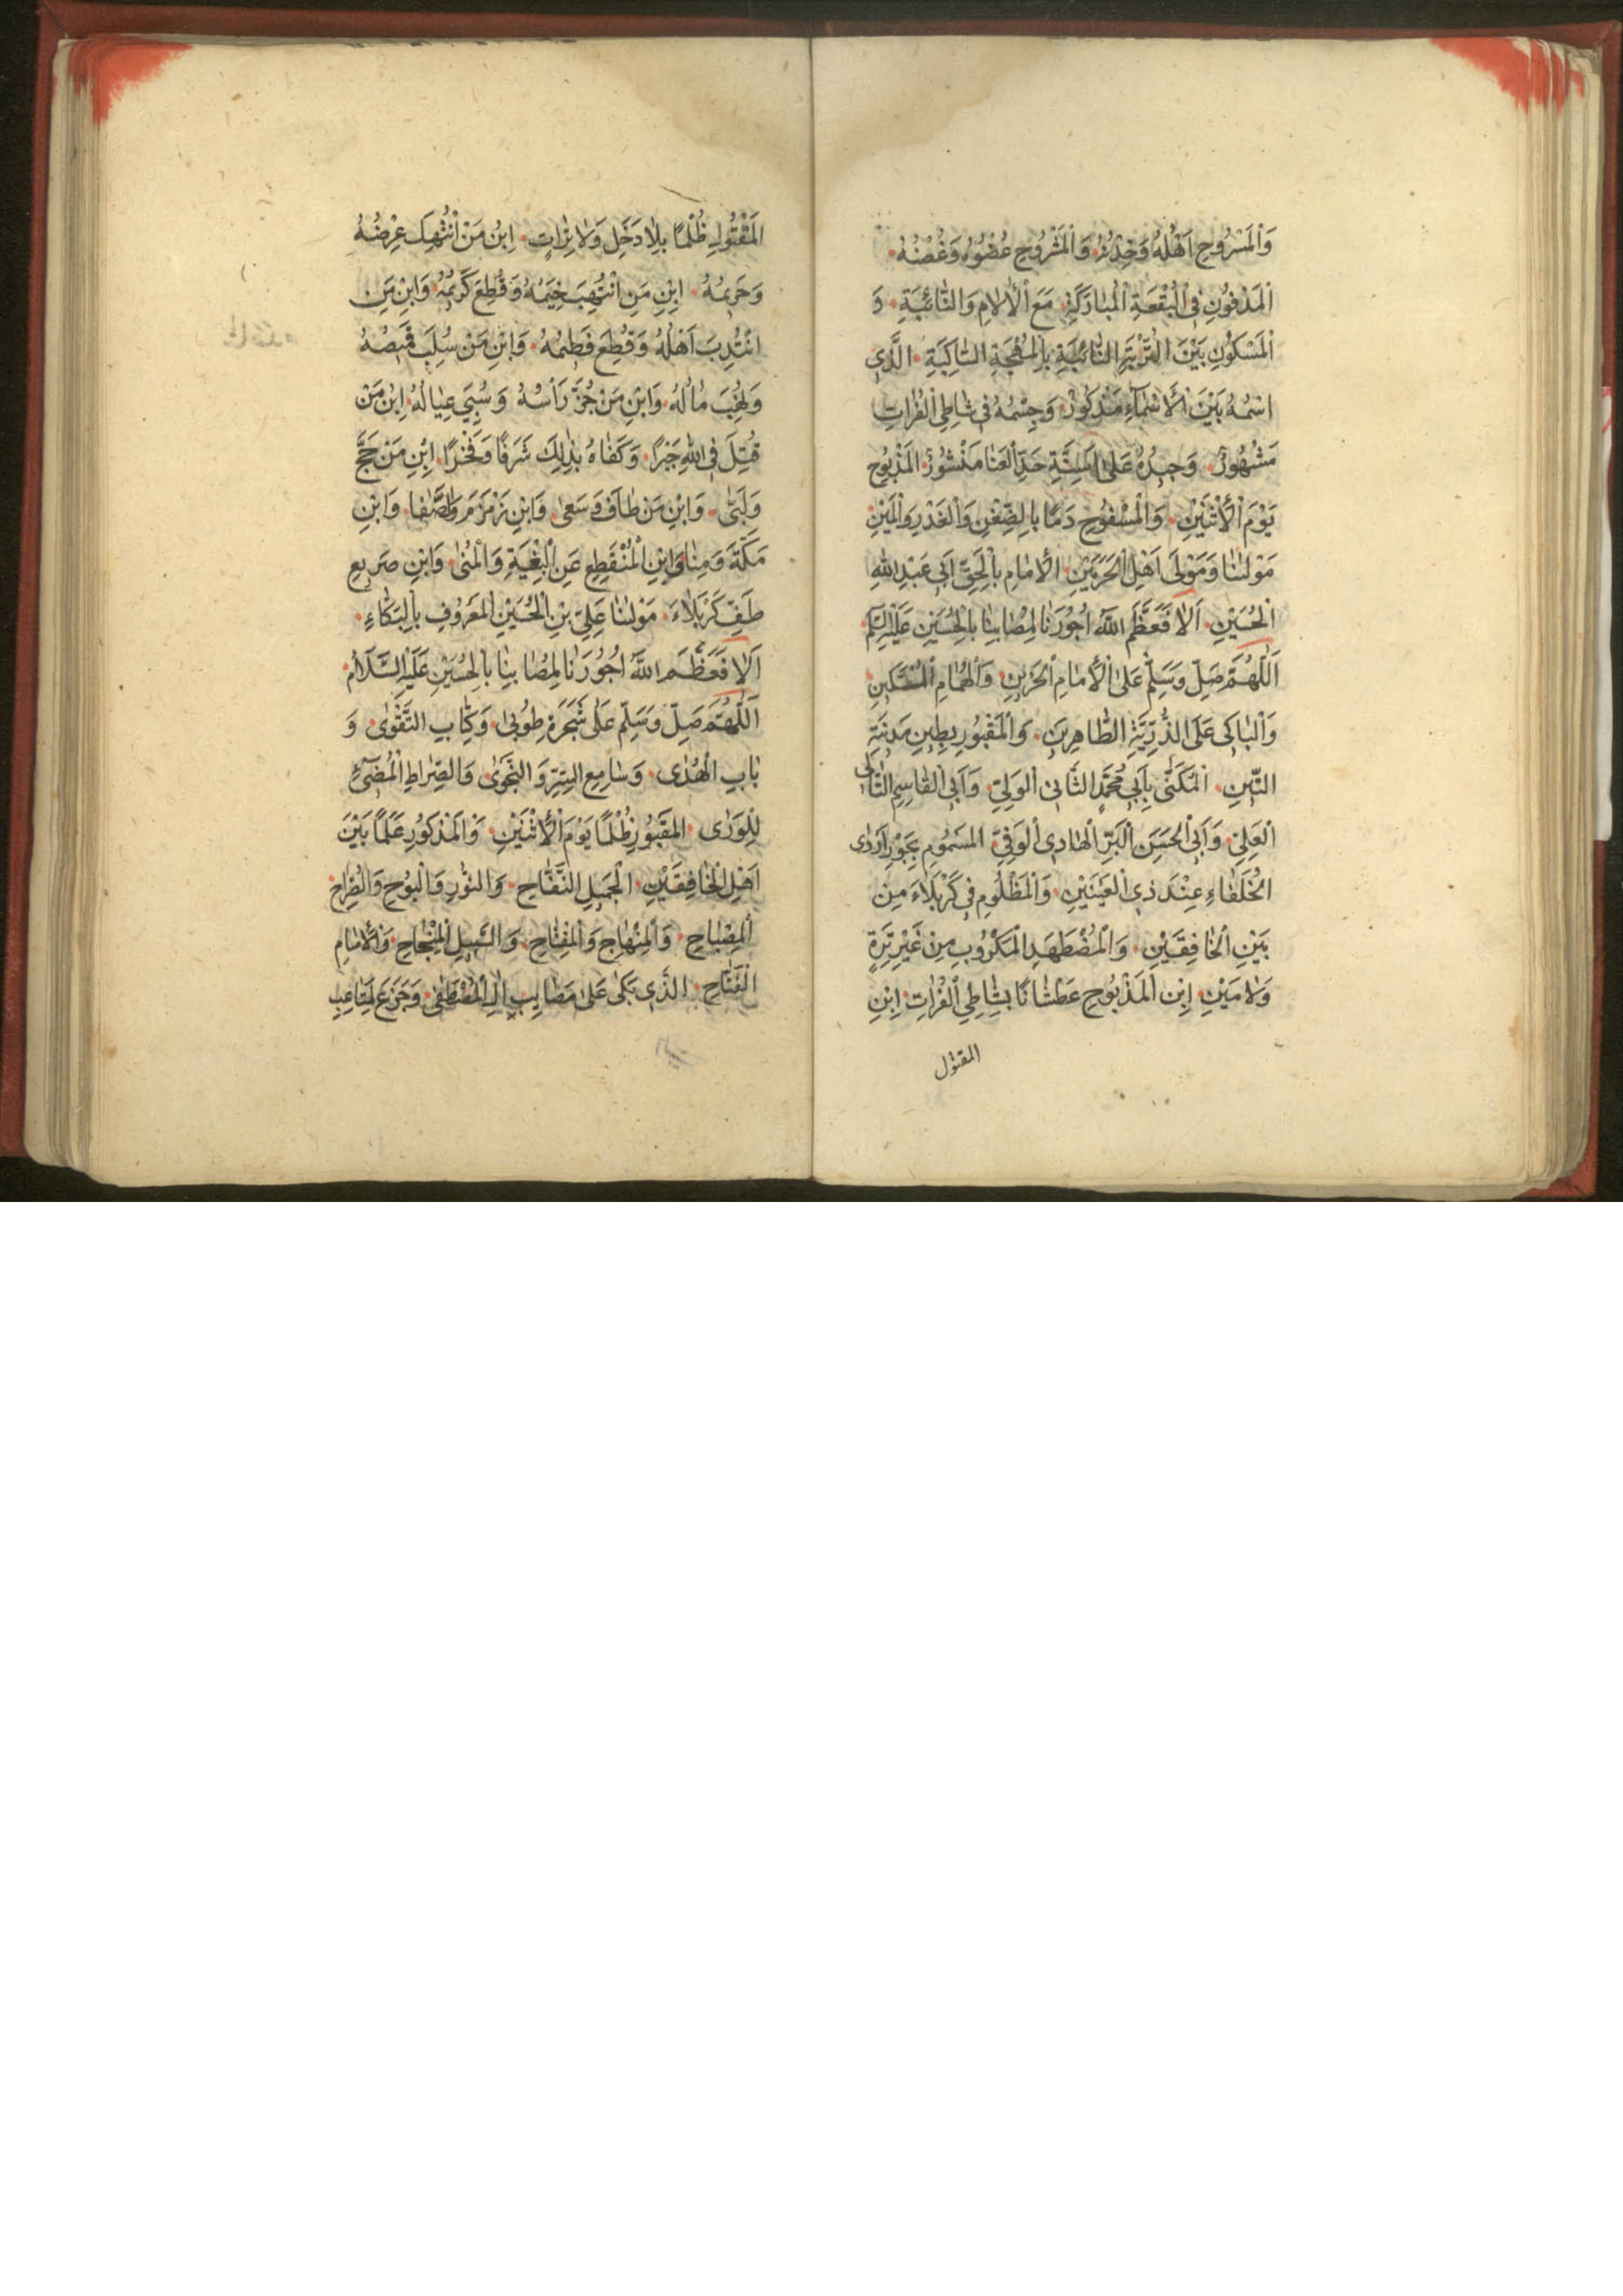 وَالْمَسْرُوحِ اَهْلُهُ وَخِدْنُهُ وَالْمَشْرُوحِ عُضْوُهُ وَغُصْنُهُ
اَلْمَدْفُونِ فِي الْبُقْعَةِ الْمُبَارَكَةِ مَعَ الْأٰلَامِ وَالنَّائِبَةِ وَ
الْمَسْكُونِ بَيْنَ التُّرْبَةِ بِالْمُهْجَةِ السَّاكِبَةِ الَّذِي
اسْمُهُ بَيْنَ الْأَسْمَآءِ مَذْكُورٌ وَجِسْمُهُ فِي شَاطِئِ الْفُرَاتِ
مَشْهُورٌ وَجِيدُهُ عَلَى اَسِنَّةِ حَدِّ الْقَنَا مَنْشُورٌ اَلْمَذْبُوحِ
يَوْمَ الْأَثْنَيْنِ وَالْمَسْفُوحِ دَمًا بِالضِّغْنِ وَالْغَدْرِ وَالْمَيْنِ
مَوْلٰنَا وَمَوْلَى اَهْلِ الْحَرَمَيْنِ الْأِمَامِ بِالْحَقِّ اَبِي عَبْدِ اللهِ
الْحُسَيْنِ اَلَا فَعَظَّمَ اللهُ اُجُورَنَا لِمُصَابِنَا بِالْحُسَيْنِ عَلَيْهِ السَّلَم
اَللّٰهُمَّ صَلِّ وَسَلِّمْ عَلَى الْأِمَامِ الْحَزِينِ وَالْهُمَامِ الْمُسْتَكِينِ
وَالْبَاكِي عَلَى الذُّرِّيَّةِ الطَّاهِرِينَ وَالْمَقْبُورِ بِطِينِ مَدِيْنَةِ
اَلْمُكَنّٰى بِاَبِي مُحَمَّدٍ الثَّانِي الْوَلِيِّ وَاَبِي الْقَاسِمِ التَّالِى
الْعَلِيِّ وَاَبِي الْحَسَنِ الْبَرِّ الْهَادِي الْوَفِيِّ اَلْمَسْمُومِ بِجَوْرِ اَرْدٰى
الْخُلَفَاءِ عِنْدَ ذِي الْعَيْنَيْنِ وَالْمَظْلُومِ فِي كَرْبَلَاءَ مِنْ
بَيْنِ الْخَافِقَيْنِ وَالْمُضْطَهَدِ الْمَكْرُوبِ مِنْ غَيْرِ تِرَةٍ
وَلَا مَيْنٍ اِبْنِ الْمَذْبُوحِ عَطْشَانًا بِشَاطِئِ الْفُرَاتِ اِبْنِ
المقتول
اَلْمَقْتُولِ ظُلْمًا بِلَا دَخَلٍ وَلَا تِرَاتٍ اِبْنِ مَنْ اُنْتُهِكَ عِرْضُهُ
وَحَرِيمُهُ اِبْنِ مَنِ انْتُهِبَ خِيَمُهُ وَقُطِعَ كَرِيْمُهُ وَابْنِ مَنِ
انْتُدِبَ اَهْلُهُ وَقُطِعَ فَطِيمُهُ وَابْنِ مَنْ سُلِبَ قَمِيصُهُ
وَنُهِبَ مَالُهُ وَابْنِ مَنْ جُزَّ رَأْسُهُ وَسُبِيَ عِيَالُهُ اِبْنِ مَنْ
قُتِلَ فِي اللهِ وَكَفَاهُ بِذٰلِكَ شَرَفًا وَفَخْرًا اِبْنِ مَنْ حَجَّ
وَلَبّٰى وَابْنِ مَنْ طَافَ وَسَعٰى وَابْنِ زَمْزَمَ وَالصَّفَا وَابْنِ
مَكَّةَ وَمِنَا وَابْنِ الْمُنْقَطِعِ عَنِ الْبُغْيَةِ وَالْمُنٰى وَابْنِ صَرِيعِ
طَفِّ كَرْبَلَاءَ مَوْلٰنَا عَلِيِّ بْنِ الْحُسَيْنِ الْمَعْرُوفِ بِالْبَكَّاءِ
اَلَا فَعَظَّمَ اللهُ اُجُورَنَا لِمُصَابِنَا بِالْحُسَيْنِ عَلَيْهِ السَّلَامُ
اَللّٰهُمَّ صَلِّ وَسَلِّمْ عَلَى شَجَرَةِ طُوبٰى وَكِتَابِ التَّقْوٰى وَ
بَابِ الْهُدٰى وَسَامِعِ السِّرِّ وَالنَّجْوٰى وَالصِّرَاطِ الْمُضِيْٓئِ
لِلْوَرٰى اَلْمَقْبُورِ ظُلْمًا يَوْمَ الْأَثْنَيْنِ وَالْمَذْكُورِ عَلَمًا بَيْنَ
اَهْلِ الْخَافِقَيْنِ اَلْجَمِيلِ النَّفَّاحِ وَالنُّورِ وَالْبَوْحِ
اَلْمِصْبَاحِ وَالْمِنْهَاجِ وَالْمِفْتَاحِ وَالسَّبِيلِ الْمِنْجَاحِ وَالْأِمَامِ
الْفَتَّاحِ الَّذِي بَكٰى عَلَى مَصَايِبِ اٰلِ الْمُصْطَفٰى وَجَزَعَ لِمَتَاعِبِ